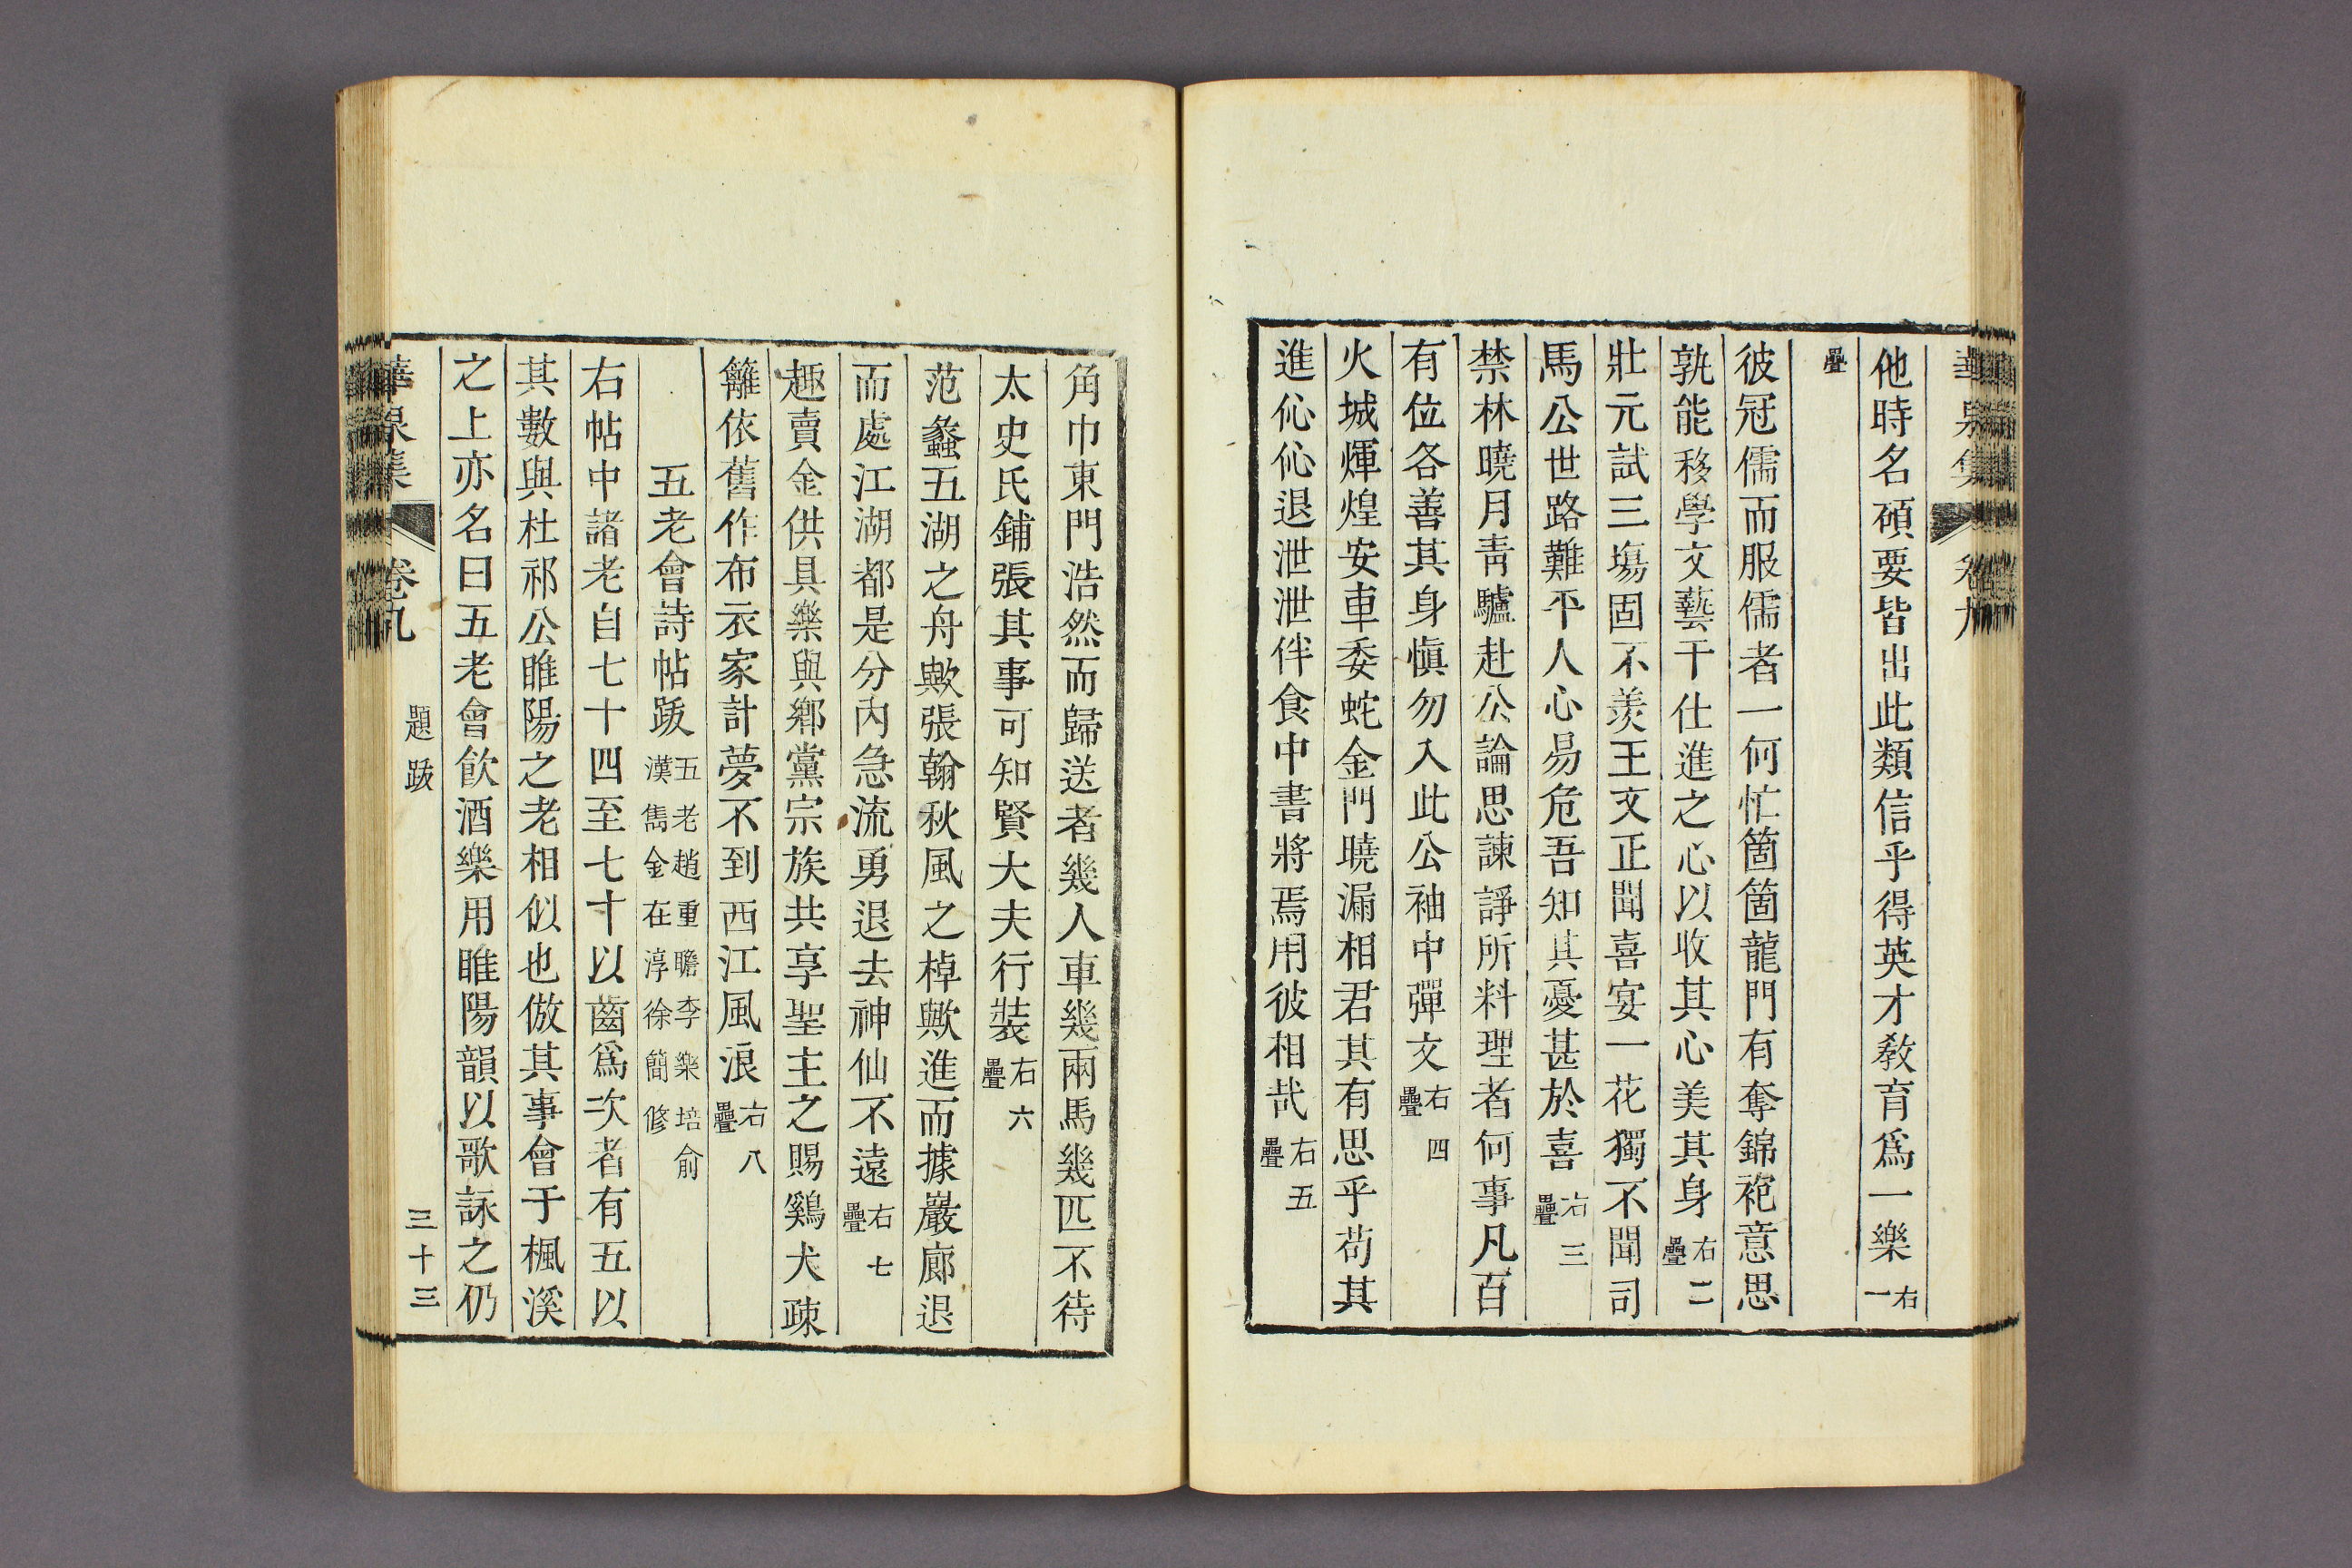 華泉集 卷九
他時名碩要皆出此類信乎得英才敎育爲一樂右一
疊
彼冠儒而服儒者一何忙箇箇龍門有奪錦袍意思
孰能移學文藝干仕進之心以收其心美其身右二疊
壯元試三塲固不羨王文正聞喜宴一花獨不聞司
馬公世路難平人心易危吾知其憂甚於喜右三疊
禁林曉月靑驢赴公論思諫諍所料理者何事凡百
有位各善其身愼勿入此公袖中彈文右四疊
火城煇煌安車委蛇金門曉漏相君其有思乎苟其
進伈伈退泄泄伴食中書將焉用彼相哉右五疊
角巾東門浩然而歸送者幾人車幾兩馬幾匹不待
太史氏鋪張其事可知賢大夫行裝右六疊
范蠡五湖之舟歟張翰秋風之棹歟進而據巖廊退
而處江湖都是分內急流勇退去神仙不遠右七疊
趣賣金供具樂與鄕黨宗族共享聖主之賜鷄犬疎
籬依舊作布衣家計夢不到西江風浪右八疊
五老會詩帖跋五老趙重瞻李樂培俞漢雋金在淳徐簡修
右帖中諸老自七十四至七十以齒爲次者有五以
其數與杜祁公睢陽之老相似也倣其事會于楓溪
之上亦名曰五老會飮酒樂用睢陽韻以歌詠之仍
華泉集 卷九 題跋 三十三